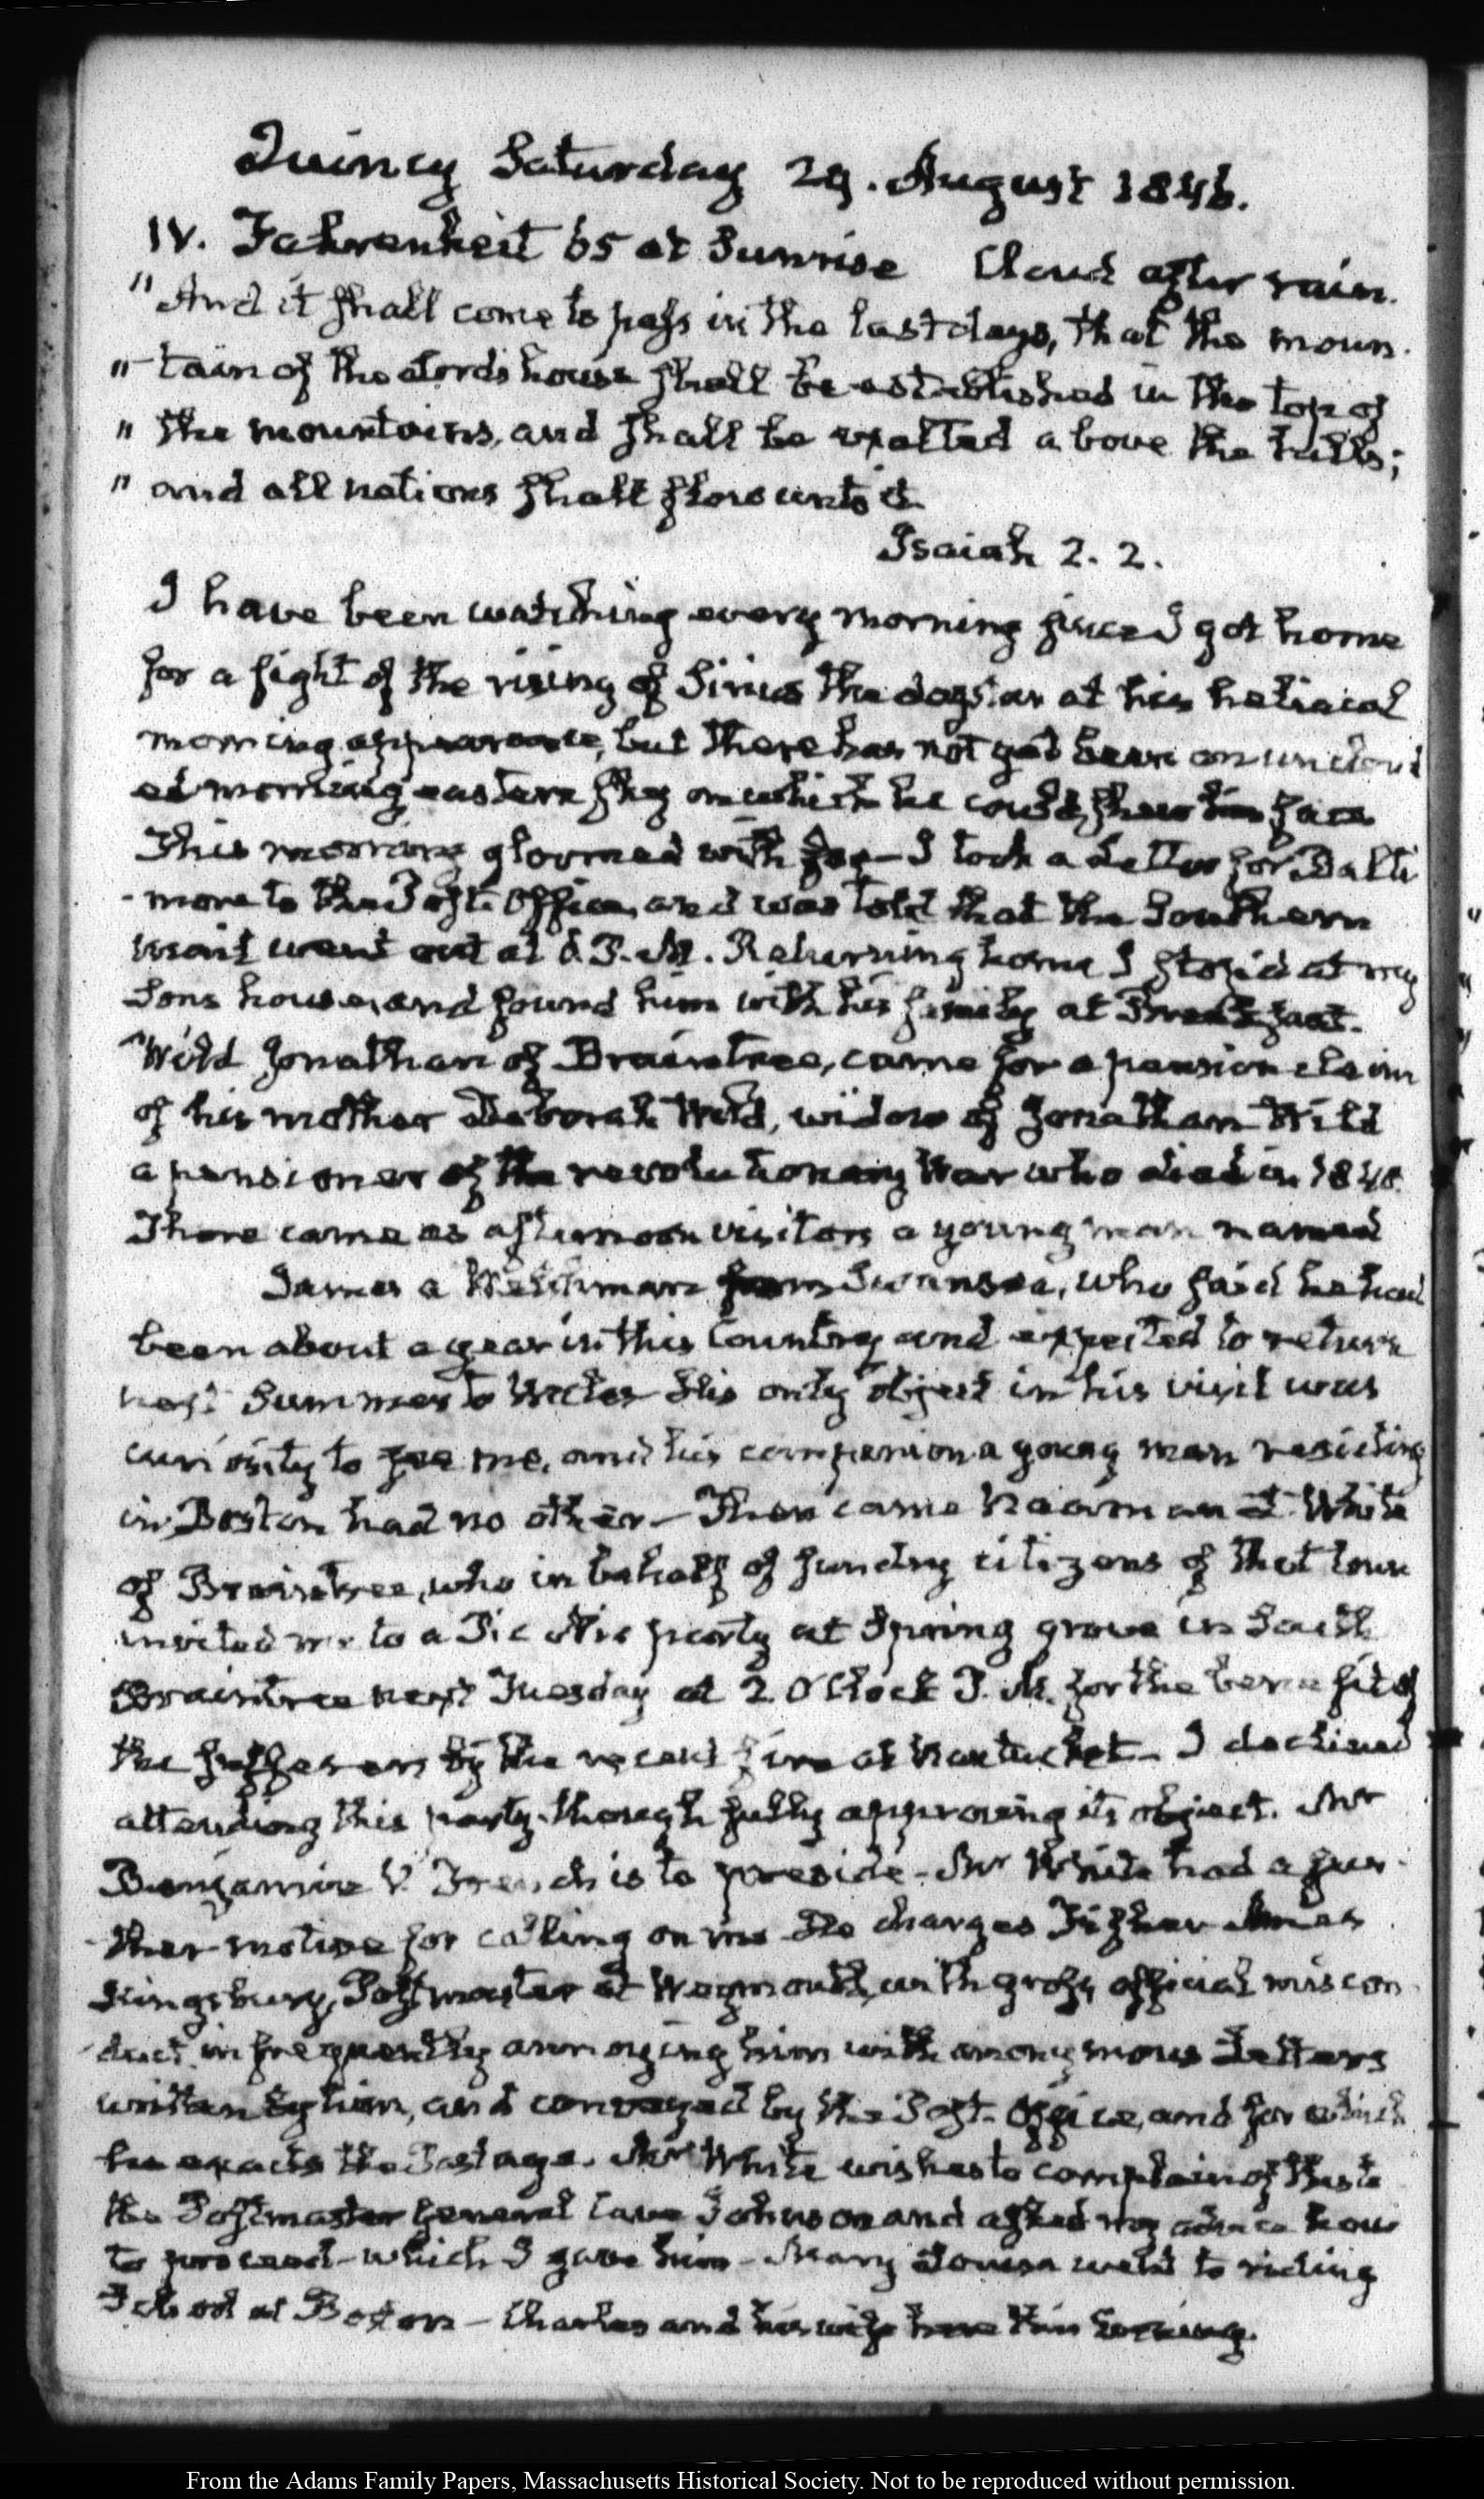 Quincy Saturday 29. August 1846.
IV. Fahrenheit 65 at Sunrise Cloud after rain.
"And it shall come to pass in the last days, that the moun-
"-tain of the Lords house shall be established in the top of
"the mountains, and shall be exalted above the hills;
"and all nations shall flow unto it
Isaiah 2. 2.
I have been watching every morning since I got home
for a sight of the rising of Sirius the dogstar at his heliacal
morning appearance, but there has not yet been an uncloud
ed morning eastern sky on which he could show his face
This morning gloomed with fog — I took a Letter for Balti
-more to the Post-Office, and was told that the Southern
mail went out at P.M. Returning home I stop'd at my
Sons house, and found him with his family at Breakfast-
Wild Jonathan of Braintree, came for a pension claim
of his mother Deborah Wild, widow of Jonathan Wild
a pensioner of the revolutionary War who died in 1840.
There came as afternoon visitors a young man named
James a Welchman from Swansea, who said he had
been about a year in this Country and expected to return
next Summer to Wales His only object in his visit was
curiosity to see me, and his companion a young man residing
in Boston had no other — Then came Naaman L. White
of Braintree, who in behalf of sundry citizens of that town
invited me to a Pic Nic party at Spring grove in South
Braintree next Tuesday at 2. O'Clock P.M. for the benefit of
the sufferers by the recent fire at Nantucket — I declined
attending this party though fully approving its object. Mr
Benjamin V. French is to preside - Mr White had a fur-
-ther motive for calling on me He charges Fisher Ames
Kingsbury, Postmaster at Weymouth, with gross official miscon-
-duct in frequently annoying him with anonymous Letters
written by him, and conveyed by the Post-Office, and for which
he exacts the Postage. Mr White wishes to complain of this to
the Postmaster General Cave Johnson and asked my advice how
to proceed - which I gave him - Mary Louisa went to riding
School at Boston — Charles and his wife here this Evening.
From the Adams Family Papers, Massachusetts Historical Society. Not to be reproduced without permission.